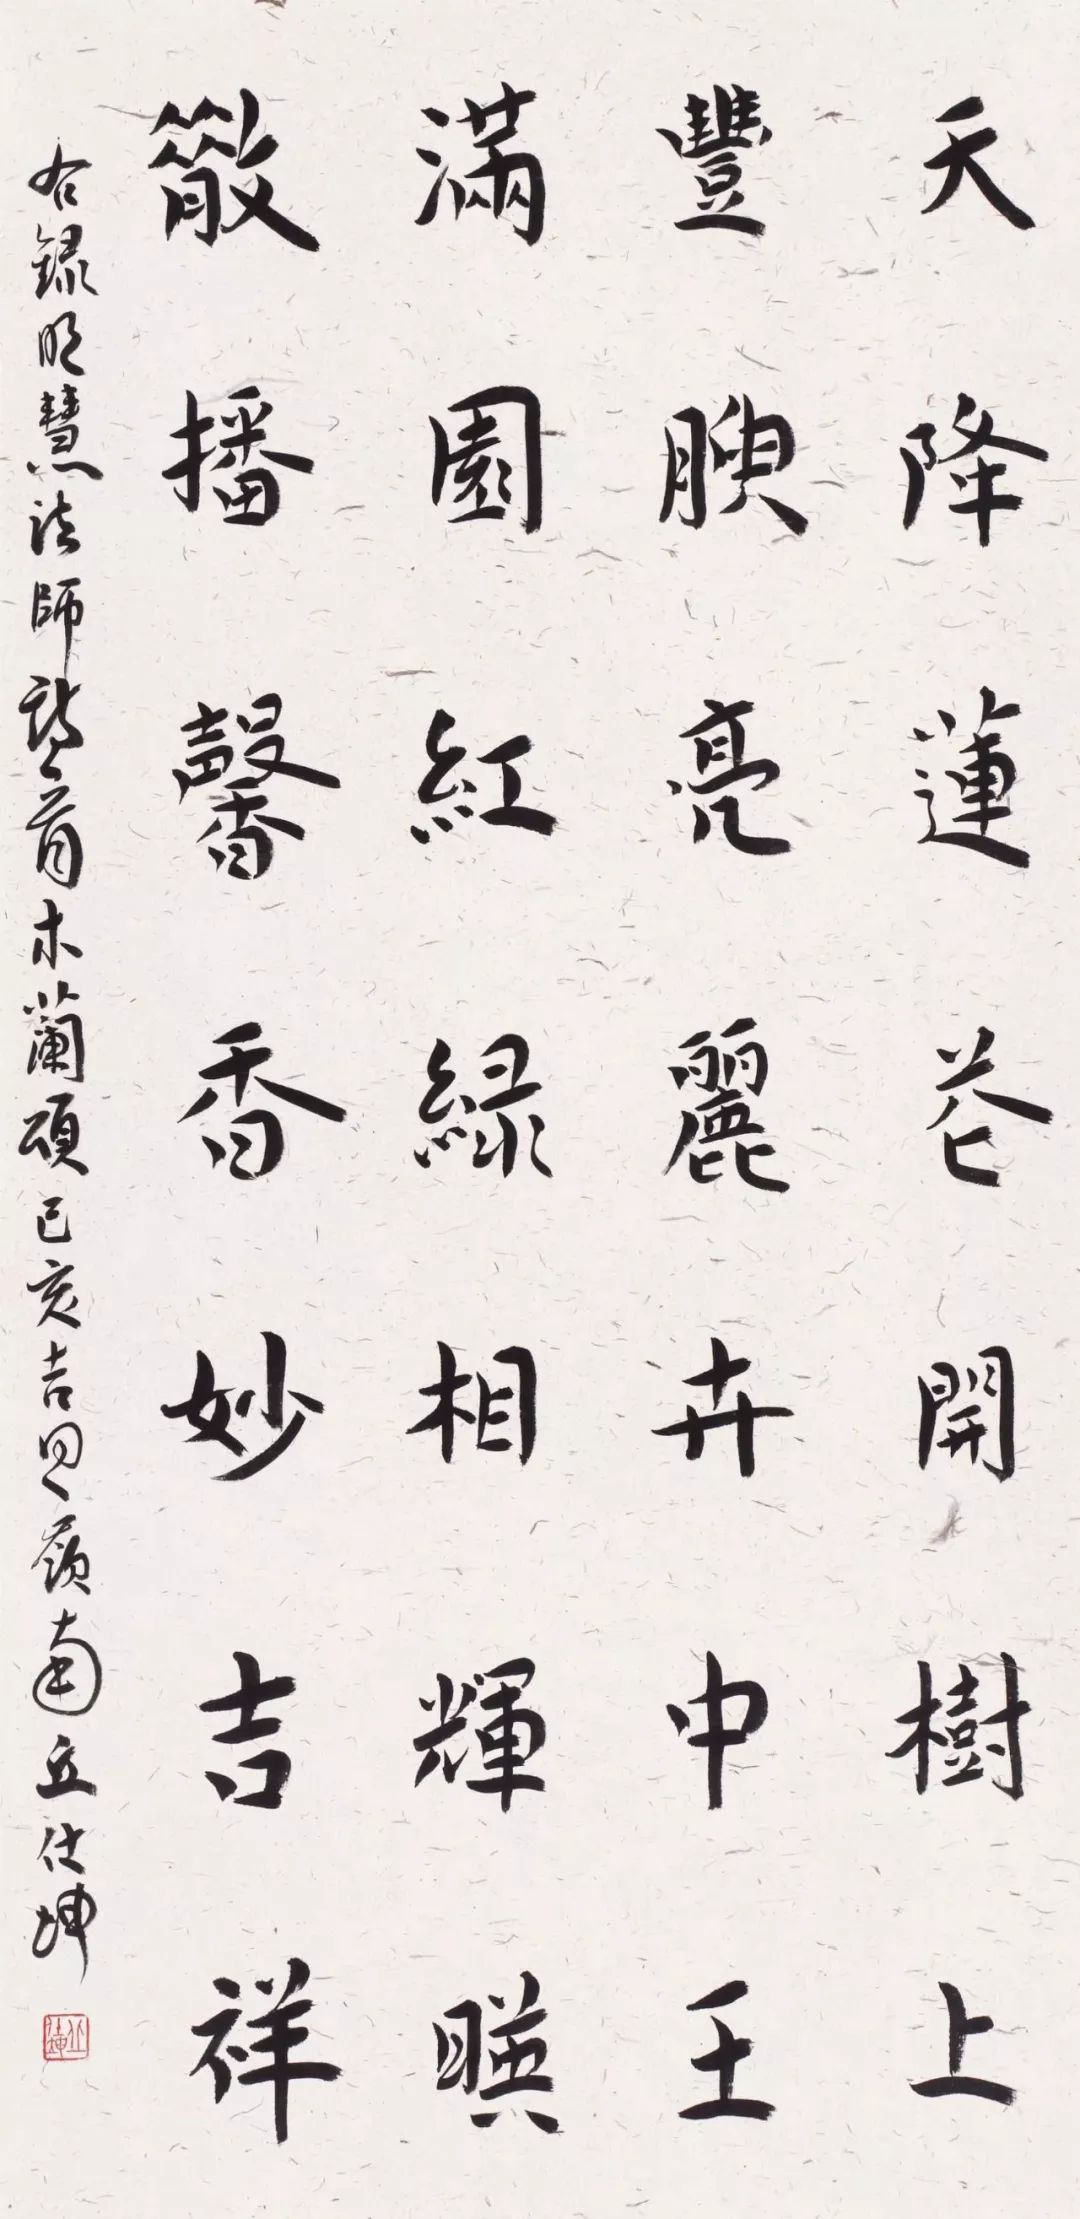 天降蓮花開樹上
豐腴亮麗卉中王
滿園紅綠相輝暎
散播馨香妙吉祥
右錄明慧法師詩一首木蘭頌己亥吉日嶺南丘仕坤